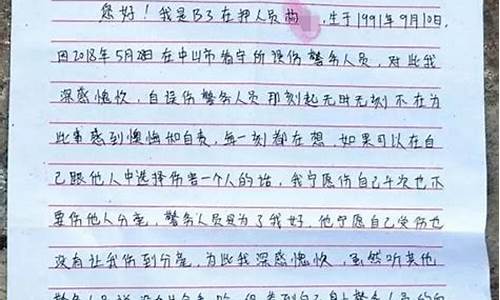 您好！我是B3在押人员 ，生于1991年9月10日，
因2018年5月28日在中山市看守所误伤警务人员，对此我
深感愧疚，自误伤警务人员那刻起无时无刻不在为
此事感到懊悔如自责，每一刻都在想，如果可以在自
己跟他人中选择伤害一个人的话，我宁愿伤自己千次也不
要伤他人分毫，警务人员是为了我好，他宁愿自己受伤也
没有让我伤到分毫，为此我深感愧疚，虽然听其他
警务人员说没有